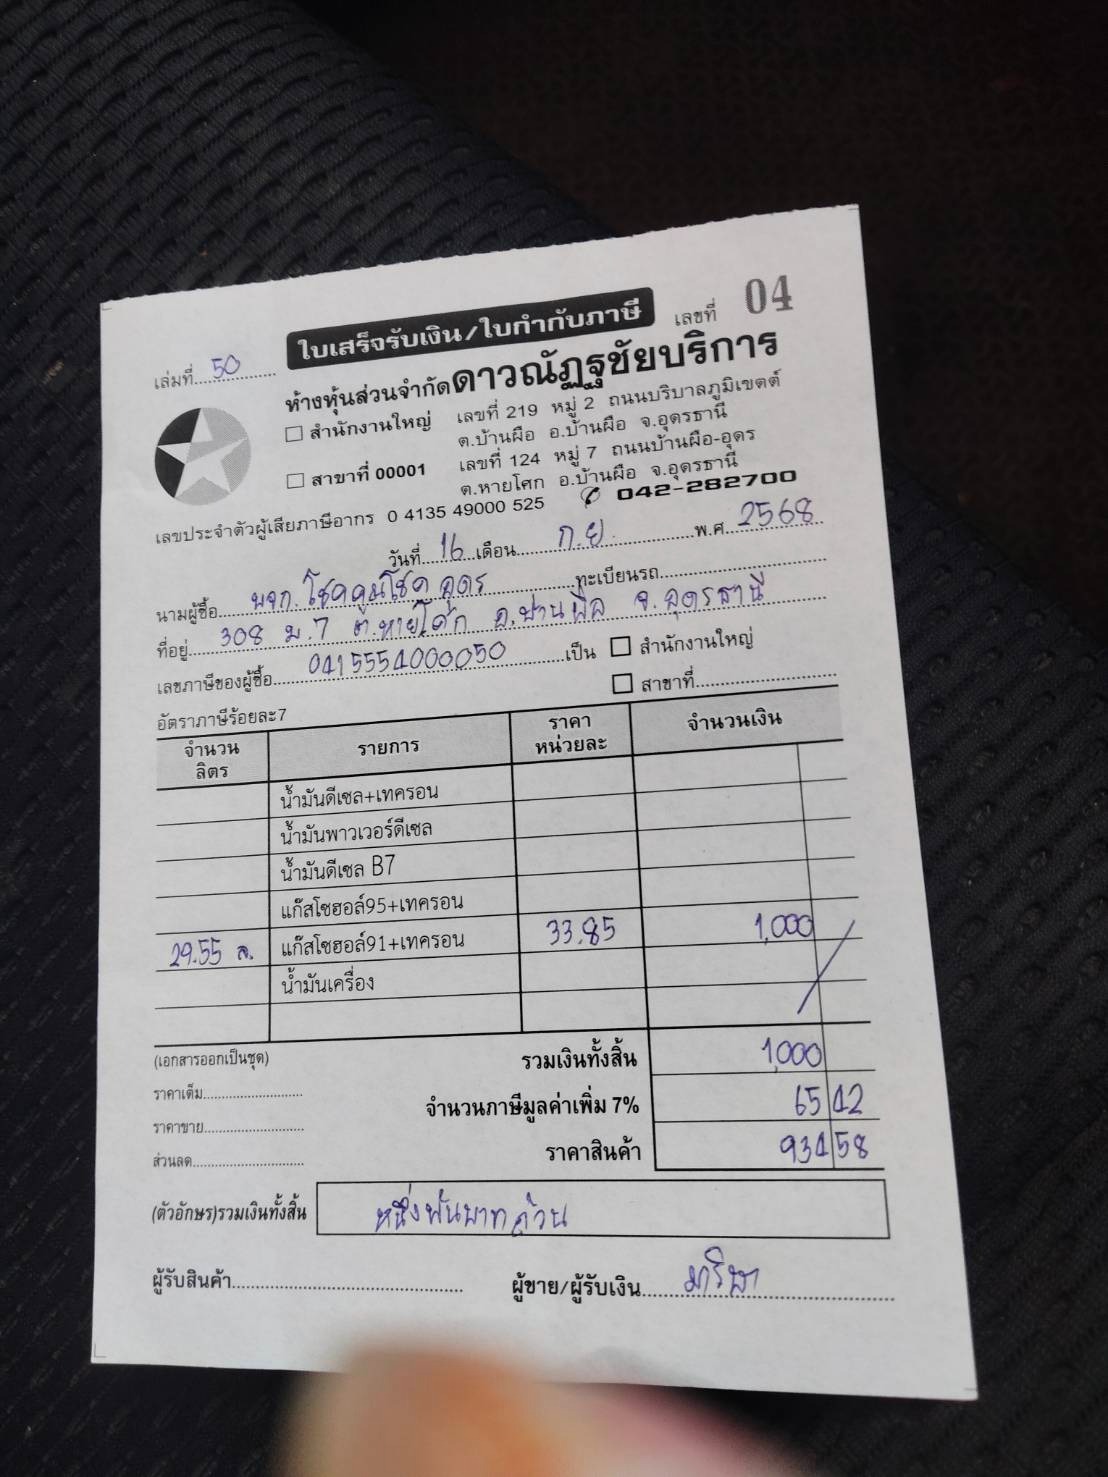 ใบเสร็จรับเงิน/ใบกำกับภาษี
เลขที่ 04
เล่มที่ 50
ห้างหุ้นส่วนจำกัดดาวณัฏฐชัยบริการ
☐ สำนักงานใหญ่ เลขที่ 219 หมู่ 2 ถนนบริบาลภูมิเขตต์
ต.บ้านผือ อ.บ้านผือ จ.อุดรธานี
☐ สาขาที่ 00001 เลขที่ 124 หมู่ 7 ถนนบ้านผือ-อุดร
ต.หายโศก อ.บ้านผือ จ.อุดรธานี
เลขประจำตัวผู้เสียภาษีอากร 0 4135 49000 525 ✆ 042-282700
วันที่ 16 เดือน ก.ย. พ.ศ. 2568
นามผู้ซื้อ บจก.โชคคูณโชค อุดร ทะเบียนรถ
ที่อยู่ 308 ม.7 ต.หายโศก อ.บ้านผือ จ.อุดรธานี
เลขภาษีของผู้ซื้อ 0415554000050 เป็น ☐ สำนักงานใหญ่
☐ สาขาที่
อัตราภาษีร้อยละ7
จำนวน ลิตร รายการ ราคา หน่วยละ จำนวนเงิน
น้ำมันดีเซล+เทครอน
น้ำมันพาวเวอร์ดีเซล
น้ำมันดีเซล B7
แก๊สโซฮอล์95+เทครอน
29.55 ล. แก๊สโซฮอล์91+เทครอน 33.85 1,000
น้ำมันเครื่อง
(เอกสารออกเป็นชุด) รวมเงินทั้งสิ้น 1,000
ราคาเต็ม
จำนวนภาษีมูลค่าเพิ่ม 7% 65 42
ราคาขาย
ราคาสินค้า 934 58
ส่วนลด
(ตัวอักษร)รวมเงินทั้งสิ้น หนึ่งพันบาทถ้วน
ผู้รับสินค้า ผู้ขาย/ผู้รับเงิน